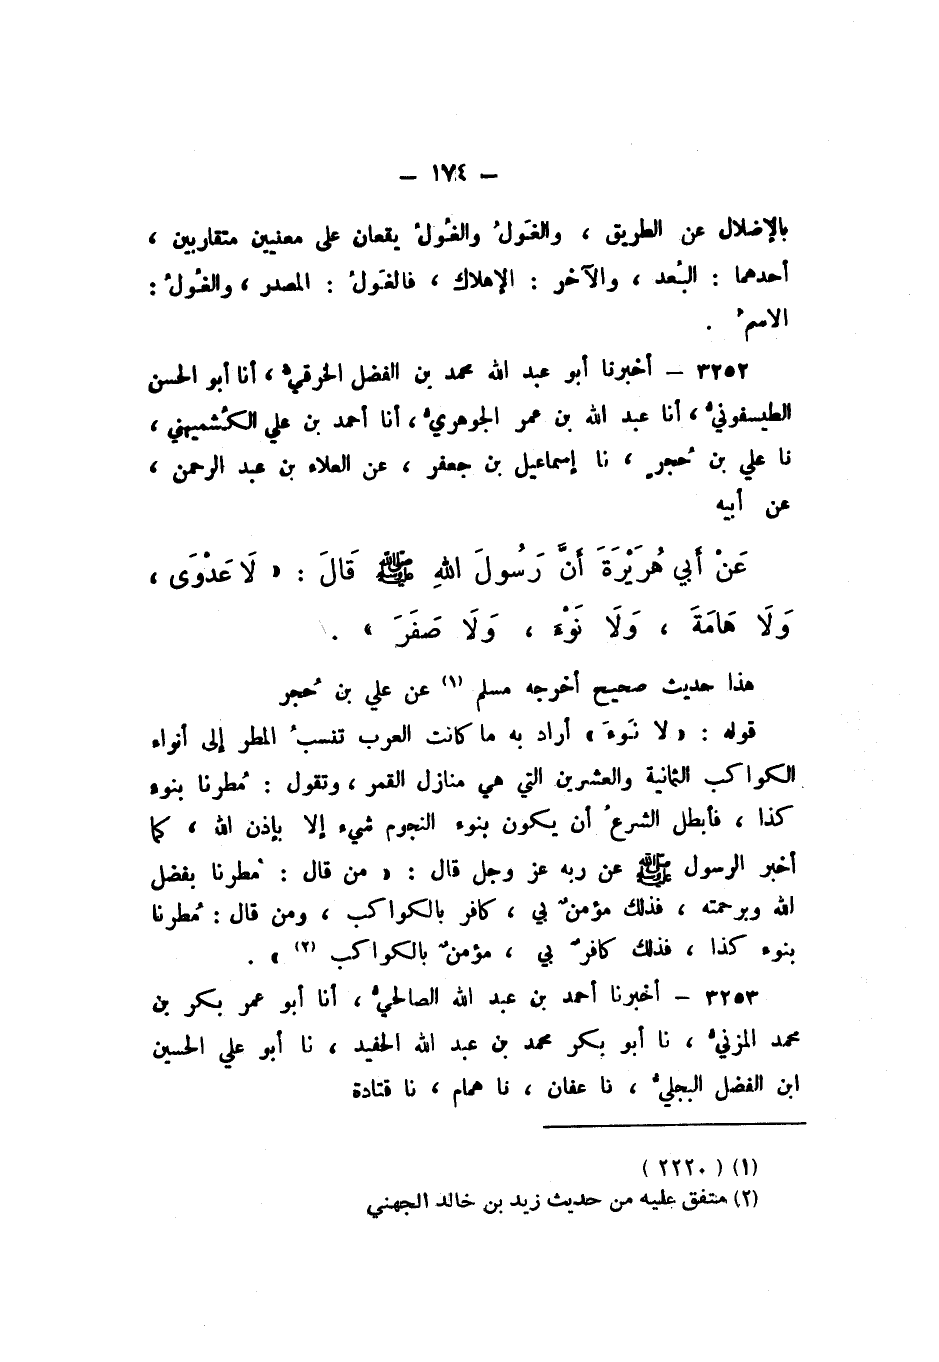 – ١٧٤ –
بالإضلال عن الطريق ، والغَولُ والغُولُ يقعان على معنيين متقاربين ،
أحدهما : البُعد ، والآخر : الإهلاك ، فالغَولُ : المصدر ، والغُولُ :
الاسمُ .
٣٢٥٢ – أخبرنا أبو عبد الله محمد بن الفضل الخرقيُّ ، أنا أبو الحسن
الطيسفونيُّ ، أنا عبد الله بن عمر الجوهريُّ ، أنا أحمد بن علي الكُشميهني ،
نا علي بن حُجرٍ ، نا إسماعيل بن جعفر ، عن العلاء بن عبد الرحمن ،
عن أبيه
عَنْ أَبِي هُرَيْرَةَ أَنَّ رَسُولَ اللهِ ﷺ قَالَ : « لَا عَدْوَى ،
وَلَا هَامَةَ ، وَلَا نَوْءَ ، وَلَا صَفَرَ » .
هذا حديث صحيح أخرجه مسلم (١) عن علي بن حُجر
قوله : « لا نَوءَ » أراد به ما كانت العرب تنسبُ المطر إلى أنواء
الكواكب الثمانية والعشرين التي هي منازل القمر ، وتقول : مُطرنا بنوء
كذا ، فأبطل الشرعُ أن يكون بنوء النجوم شيء إلا بإذن الله ، كما
أخبر الرسول ﷺ عن ربه عز وجل قال : « من قال : مُطرنا بفضل
الله وبرحمته ، فذلك مؤمنٌ بي ، كافر بالكواكب ، ومن قال : مُطرنا
بنوء كذا ، فذلك كافرٌ بي ، مؤمنٌ بالكواكب (٢) » .
٣٢٥٣ – أخبرنا أحمد بن عبد الله الصالحيُّ ، أنا أبو عمر بكر بن
محمد المزنيُّ ، نا أبو بكر محمد بن عبد الله الحفيد ، نا أبو علي الحسين
ابن الفضل البجليُّ ، نا عفان ، نا همام ، نا قتادة
(١) ( ٢٢٢٠ )
(٢) متفق عليه من حديث زيد بن خالد الجهني